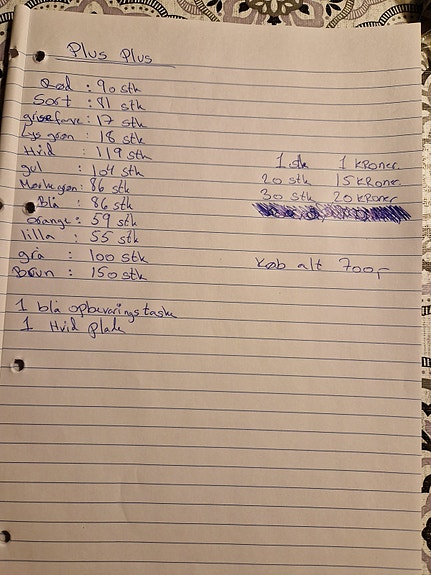 Plus Plus
Rød : 90 stk
Sort : 81 stk
grisefarve : 17 stk
Lys grøn : 18 stk
Hvid : 119 stk
gul : 104 stk
Mørkegrøn : 86 stk
Blå : 86 stk
orange : 59 stk
lilla : 55 stk
grå : 100 stk
Brun : 150 stk
1 blå opbevaringstaske
1 Hvid plade
1 stk 1 kroner
20 stk 15 kroner
30 stk 20 kroner
Køb alt 700,-